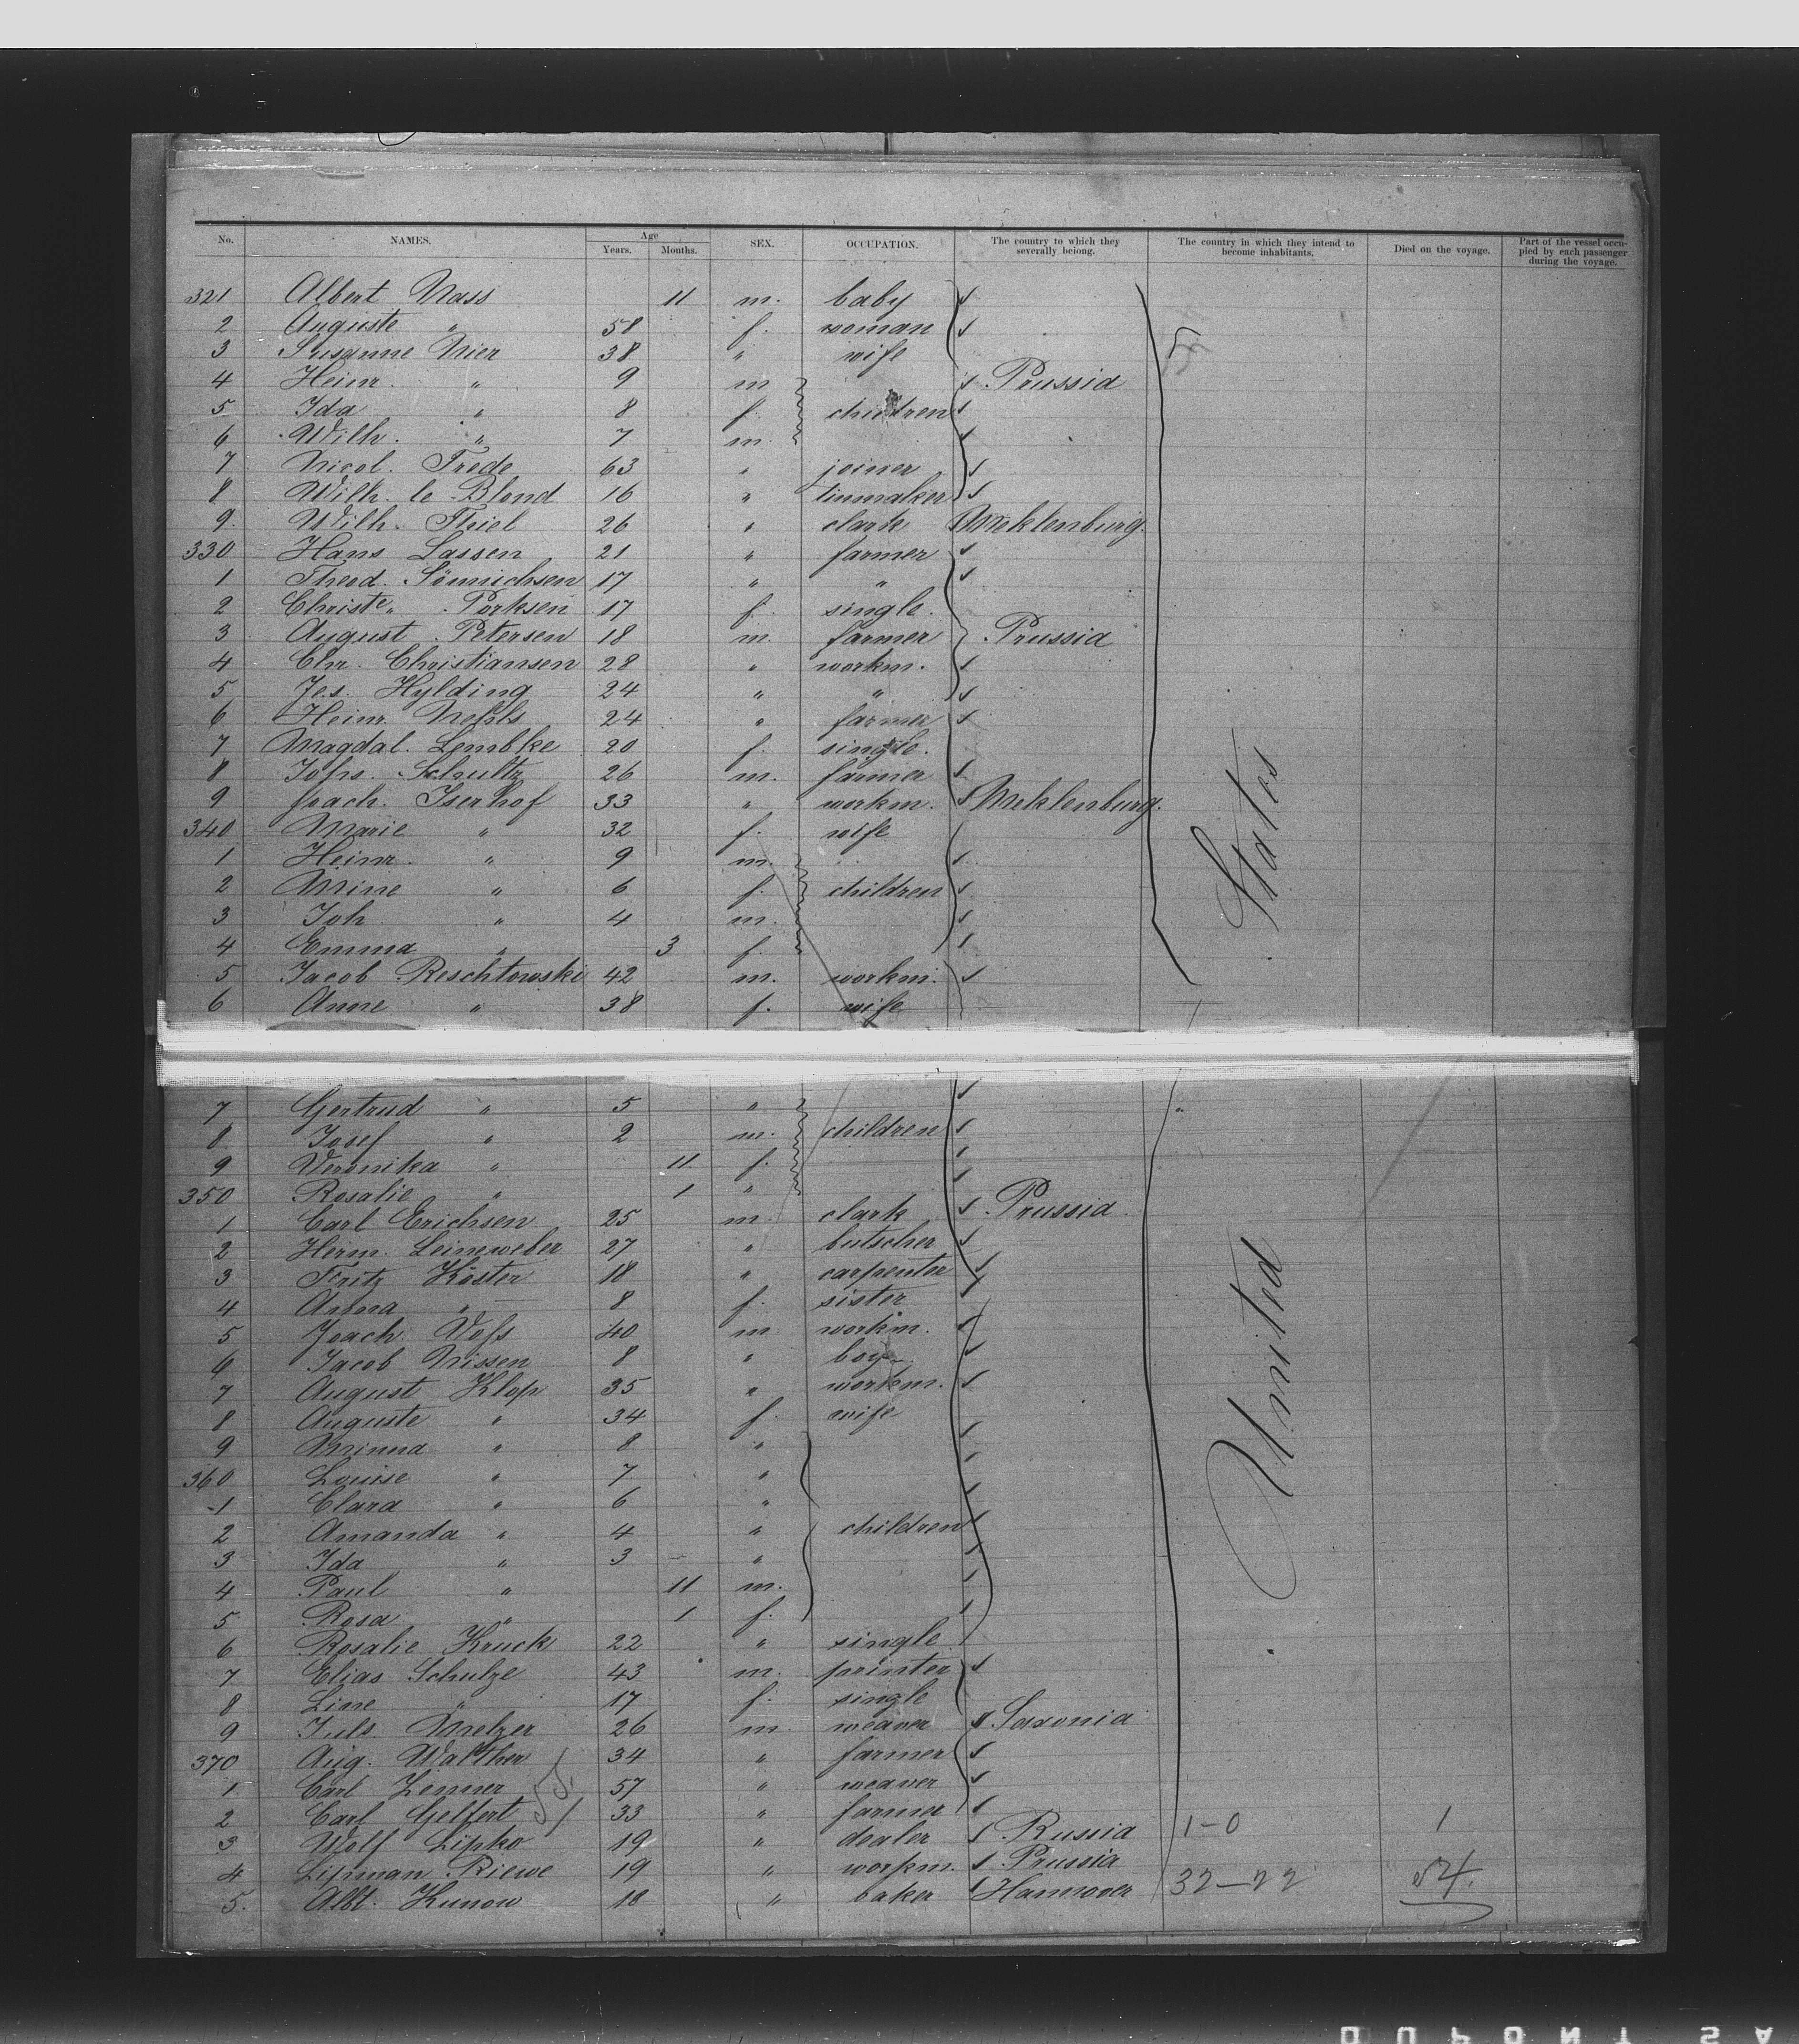 No. NAMES. Age Years. Months. SEX. OCCUPATION. The country to which they severally belong. The country in which they intend to become inhabitants. Died on the voyage. Part of the vessel occupied by each passenger during the voyage.
321 Albert Nass 11 m. baby
2 Auguste " 58 f. woman
3 Susanne Nier 38 " wife
4 Heinr. " 9 m Prussia
5 Ida " 8 f. children
6 Wilh. " 7 m.
7 Nicol. Trede 63 " joiner
8 Wilh. le Blond 16 " tinmaker
9. Wilh. Thiel 26 " clark Meklenburg.
330 Hans Lassen 21 " farmer
1 Theod. Sönnichsen 17 " "
2 Christe. Pörksen 17 f. single.
3 August Petersen 18 m. farmer Prussia
4 Chr. Christiansen 28 " workm.
5 Jes. Hylding 24 " "
6 Heinr. Nehls 24 " farmer
7 Magdal. Lembke 20 f. single.
8 Johs. Schultz 26 m. farmer
9 Joach. Iserhof 33 " workm. Meklenburg.
340 Marie " 32 f. wife
1 Heinr. " 9 m.
2 Mine " 6 f. children
3 Joh. " 4 m.
4 Emma " 3 f.
5 Jacob Reschtowski 42 m. workm.
6 Anne " 38 f. wife
States
7 Gertrud " 5 "
8 Josef " 2 m. children
9 Veronika " 11 f.
350 Rosalie " 1 "
1 Carl Erichsen 25 m. clark Prussia
2 Herm. Leineweber 27 " butscher
3 Fritz Köster 18 " carpenter
4 Anna " 8 f. sister
5 Joach. Vofs 40 m workm.
6 Jacob Nissen 8 " boy
7 August Klop 35 " workm.
8 Auguste " 34 f. wife
9 Minna " 8 "
360 Louise " 7 "
1 Clara " 6 "
2 Amanda " 4 " children
3 Ida " 3 "
4 Paul " 11 m.
5 Rosa " 1 f.
6 Rosalie Kruck 22 " single
7 Elias Schulze 43 m. printer
8 Line " 17 f. single
9 Juls. Melzer 26 m weaver Saxonia
370 Aug. Walther 34 " farmer
1 Carl Zenner 57 " weaver
2 Carl Gelfert 33 " farmer
3 Wolf Lipko 19 " dealer Russia 1-0 1
4 Lipman Riewe 19 " workm. Prussia
5. Albt. Kunow 18 " baker Hannover 32-22 54.
United